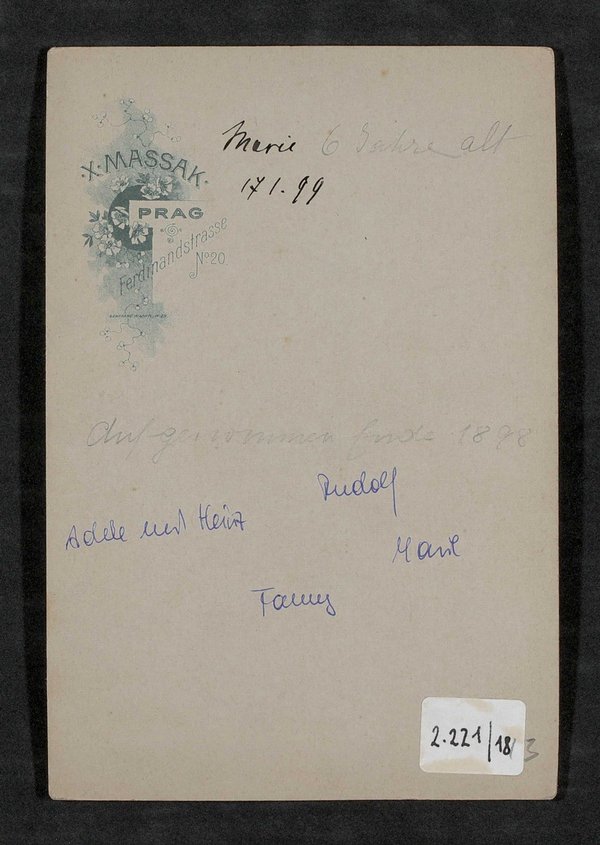 X. MASSAK.
PRAG
Ferdinandstrasse
No 20.
Marie 6 Jahre alt
17 1. 99
Aufgenommen Ende 1898
Rudolf
Adele und Heinz
Marie
Fanny
2.221/18/3